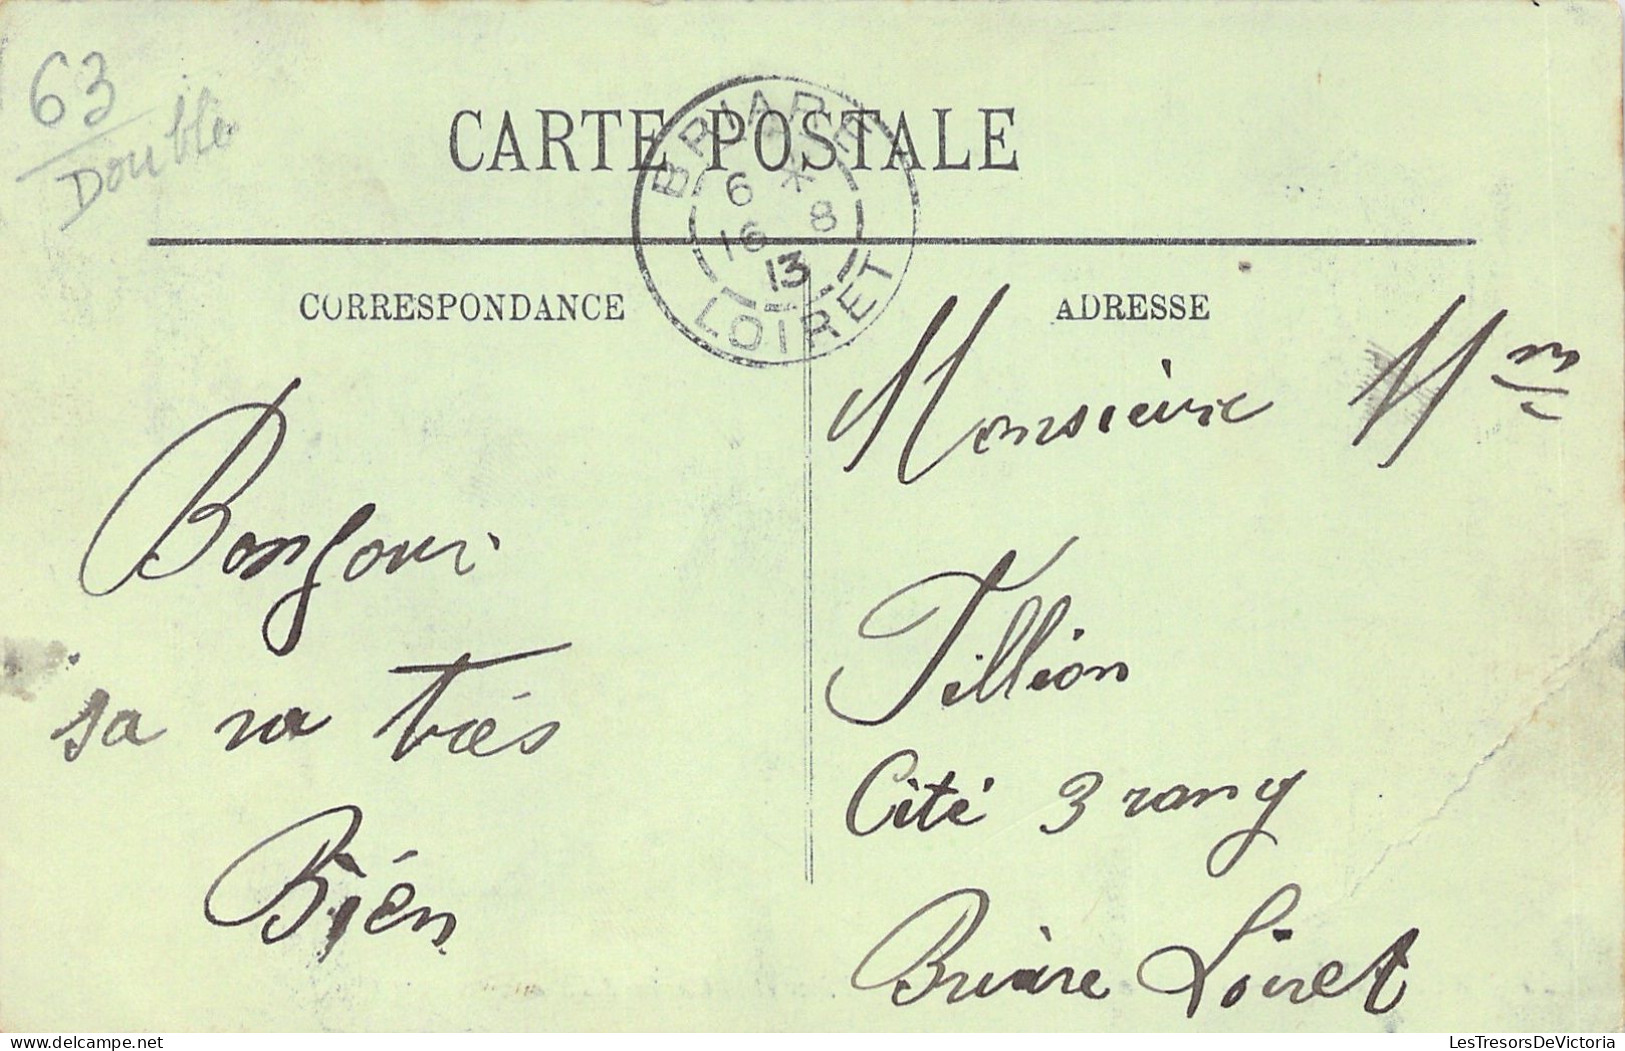 63
Double
CARTE POSTALE
BRIARE
6 *
16 8
13
LOIRET
CORRESPONDANCE
ADRESSE
Bonjour
sa va trés
Bién
Monsieure Mme
Tillion
Cité 3 rang
Briare Loiret
delcampe.net
LesTresorsDeVictoria